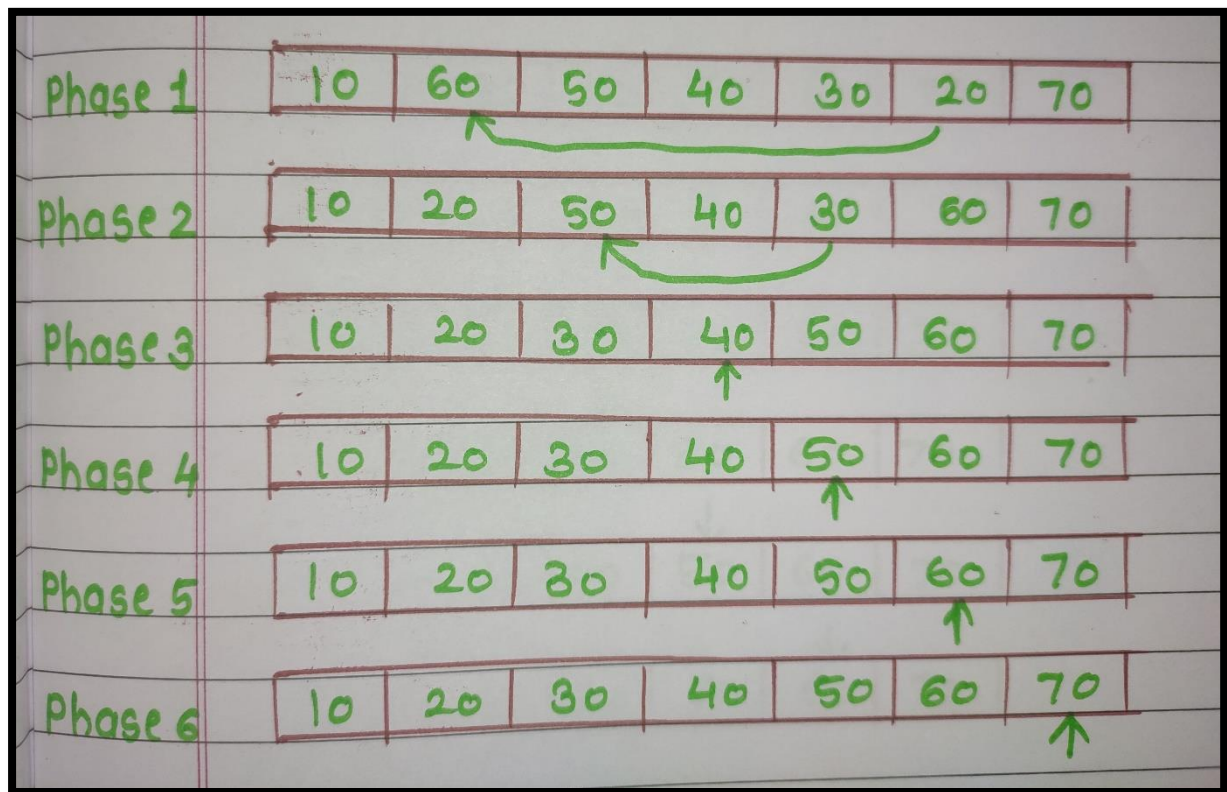 Phase 1 10 60 50 40 30 20 70
Phase 2 10 20 50 40 30 60 70
Phase 3 10 20 30 40 50 60 70
Phase 4 10 20 30 40 50 60 70
Phase 5 10 20 30 40 50 60 70
Phase 6 10 20 30 40 50 60 70